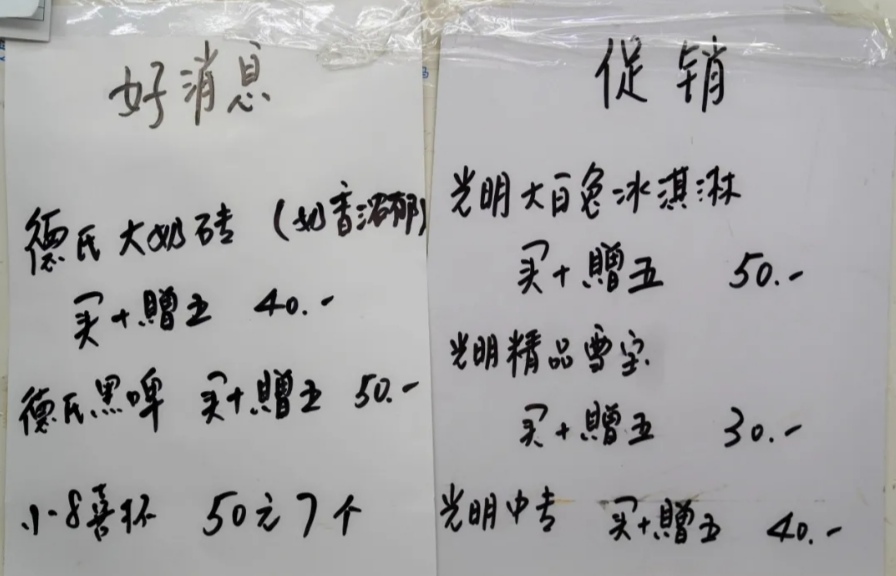 好消息
德氏大奶砖（奶香浓郁）
买十赠五 40.-
德氏黑啤 买十赠五 50.-
小8喜杯 50元7个
促销
光明大白兔冰淇淋
买十赠五 50.-
光明精品雪宝
买十赠五 30.-
光明中专 买十赠五 40.-